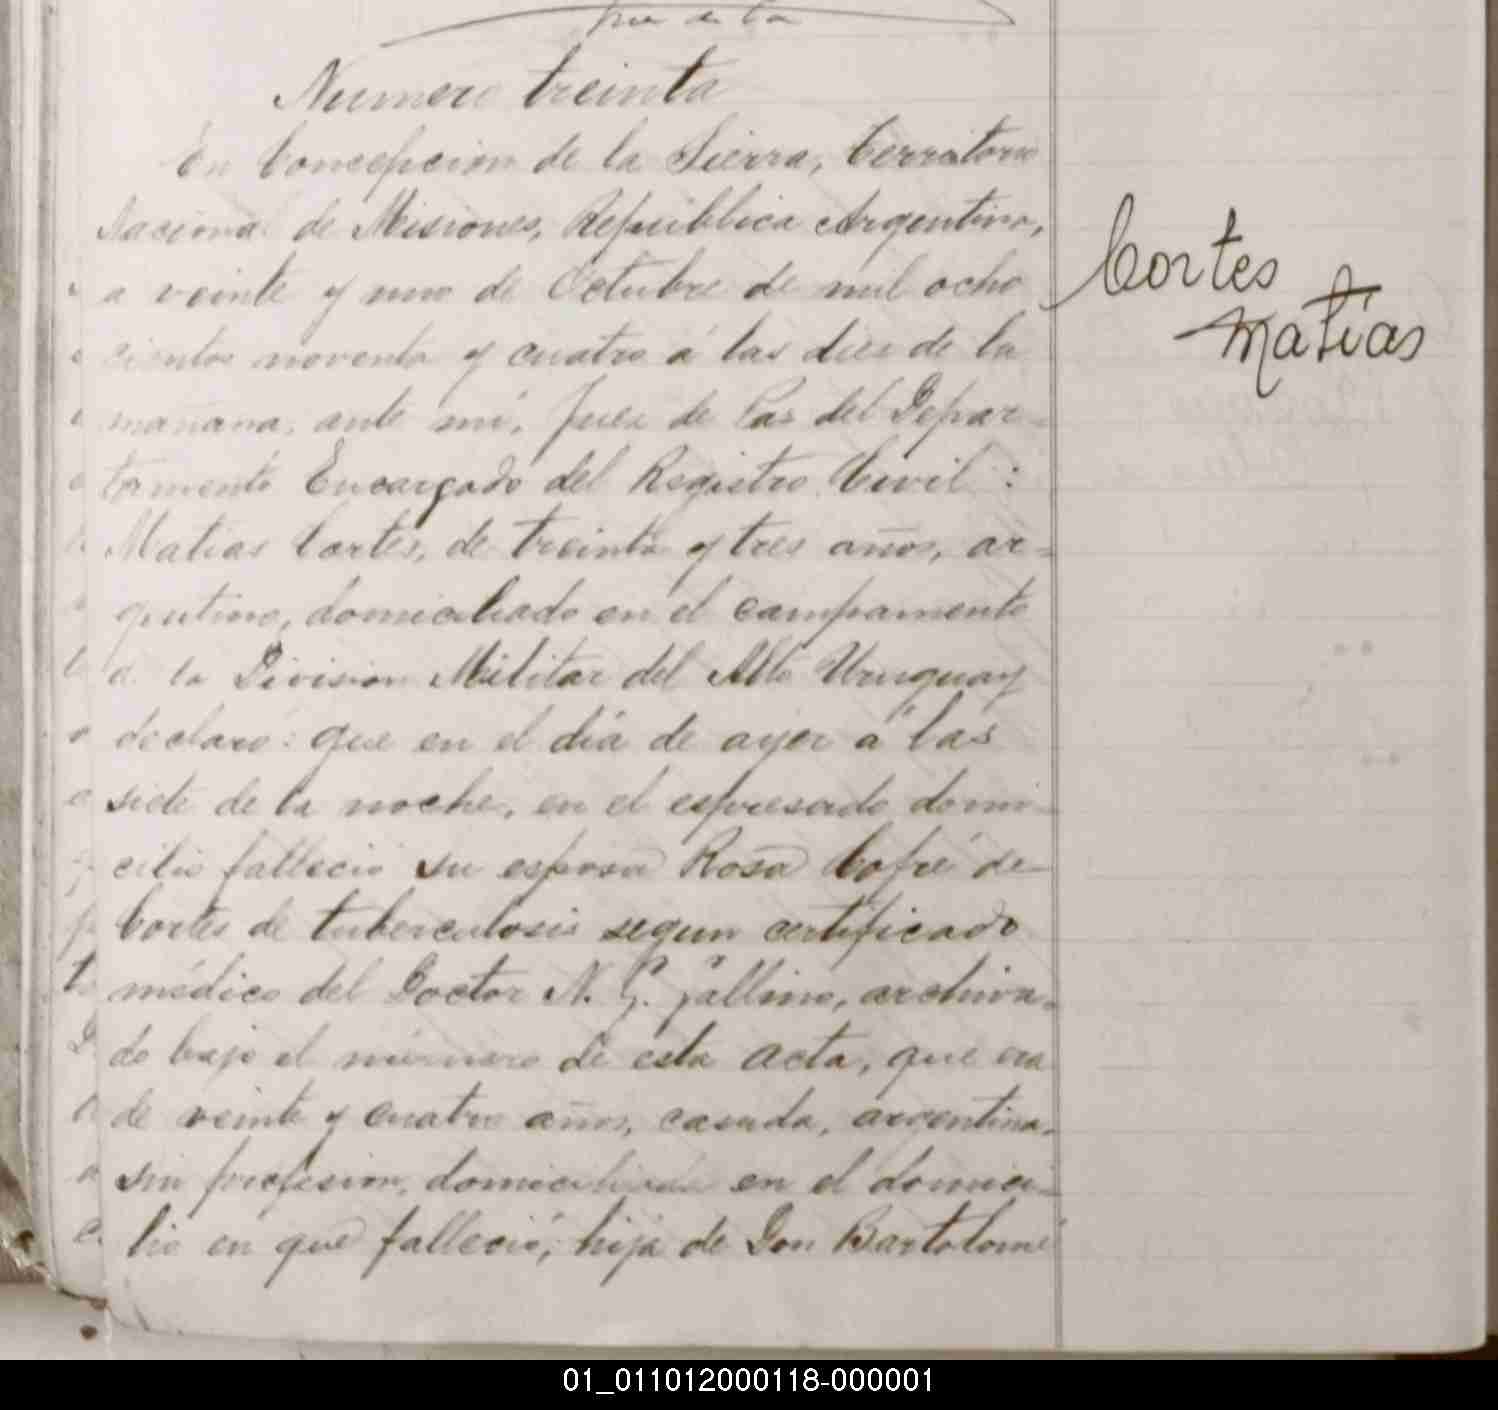 Numero treinta
En Concepcion de la Sierra, Territorio
Nacional de Misiones, República Argentina,
a veinte y uno de Octubre de mil ocho
cientos noventa y cuatro á las diez de la
mañana, ante mí, Juez de Paz del Depar-
tamento Encargado del Registro Civil:
Matias Cortes, de treinta y tres años, ar-
gentino, domiciliado en el campamento
de la Division Militar del Alto Uruguay
declaró: que en el día de ayer á las
siete de la noche, en el espresado domi-
cilio falleció su esposa Rosa Cofré de
Cortes de tuberculosis segun certificado
médico del Doctor N. G. Gallino, archiva-
do bajo el número de esta acta, que era
de veinte y cuatro años, casada, argentina,
sin profesion, domiciliada en el domici-
lio en que falleció; hija de Don Bartolomé
Cortes
Matías
01_011012000118-000001